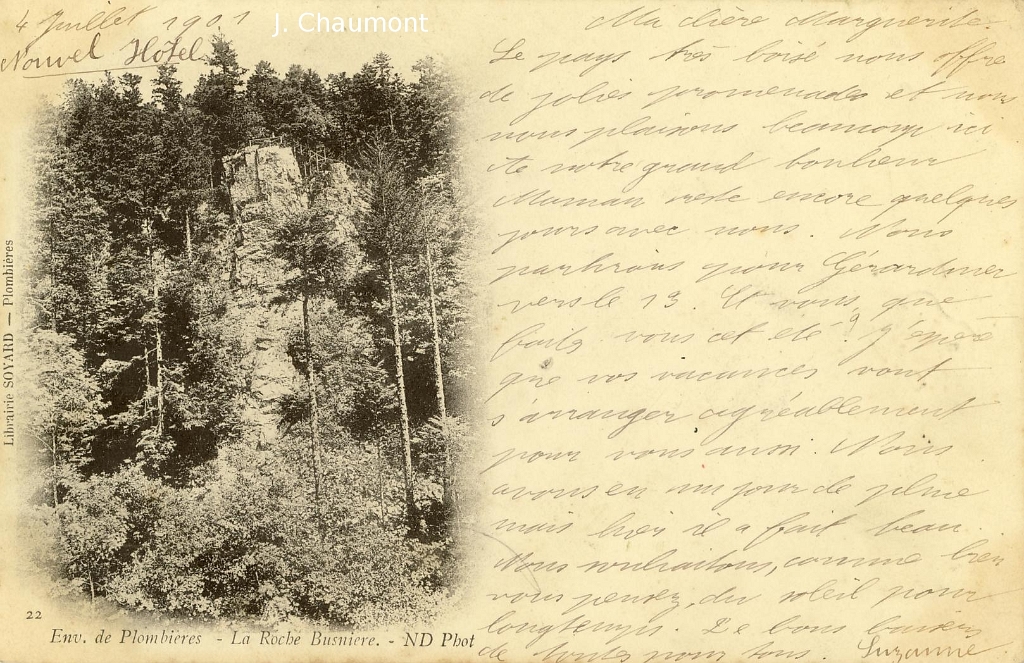 4 Juillet 1901
Nouvel Hôtel
J. Chaumont
Librairie SOYARD — Plombières
22
Env. de Plombières - La Roche Busniere. - ND Phot
Ma chère Marguerite.
Le pays très boisé nous offre
de jolies promenades et nous
nous plaisons beaucoup ici
A notre grand bonheur
Maman reste encore quelques
jours avec nous. Nous
partirons pour Gérardmer
vers le 13. Et vous, que
faites vous cet été ? J'espère
que vos vacances vont
s'arranger agréablement
pour vous aussi. Nous
avons eu un jour de pluie
mais hier il a fait beau.
Nous souhaitons, comme bien
vous pensez, du soleil pour
longtemps. De bons baisers
de toutes pour tous. Suzanne